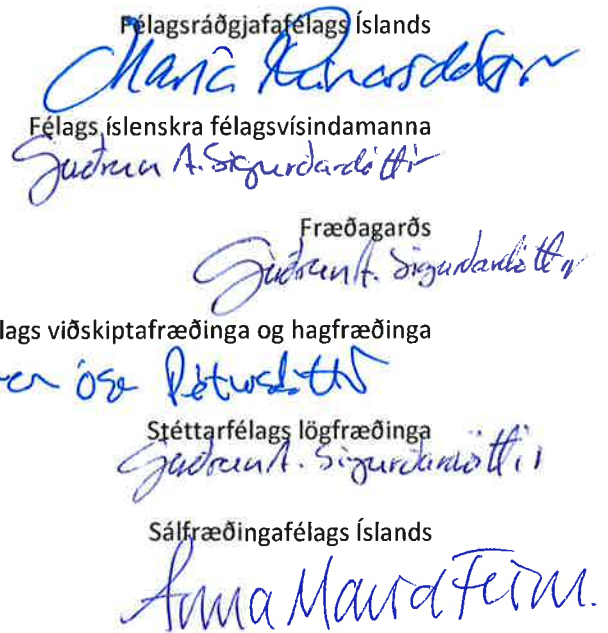 Félagsráðgjafafélags Íslands
María Rúnarsdóttir
Félags íslenskra félagsvísindamanna
Guðrún A. Sigurðardóttir
Fræðagarðs
Guðrún A. Sigurðardóttir
lags viðskiptafræðinga og hagfræðinga
Ósk Pétursdóttir
Stéttarfélags lögfræðinga
Guðrún A. Sigurðardóttir
Sálfræðingafélags Íslands
Anna María